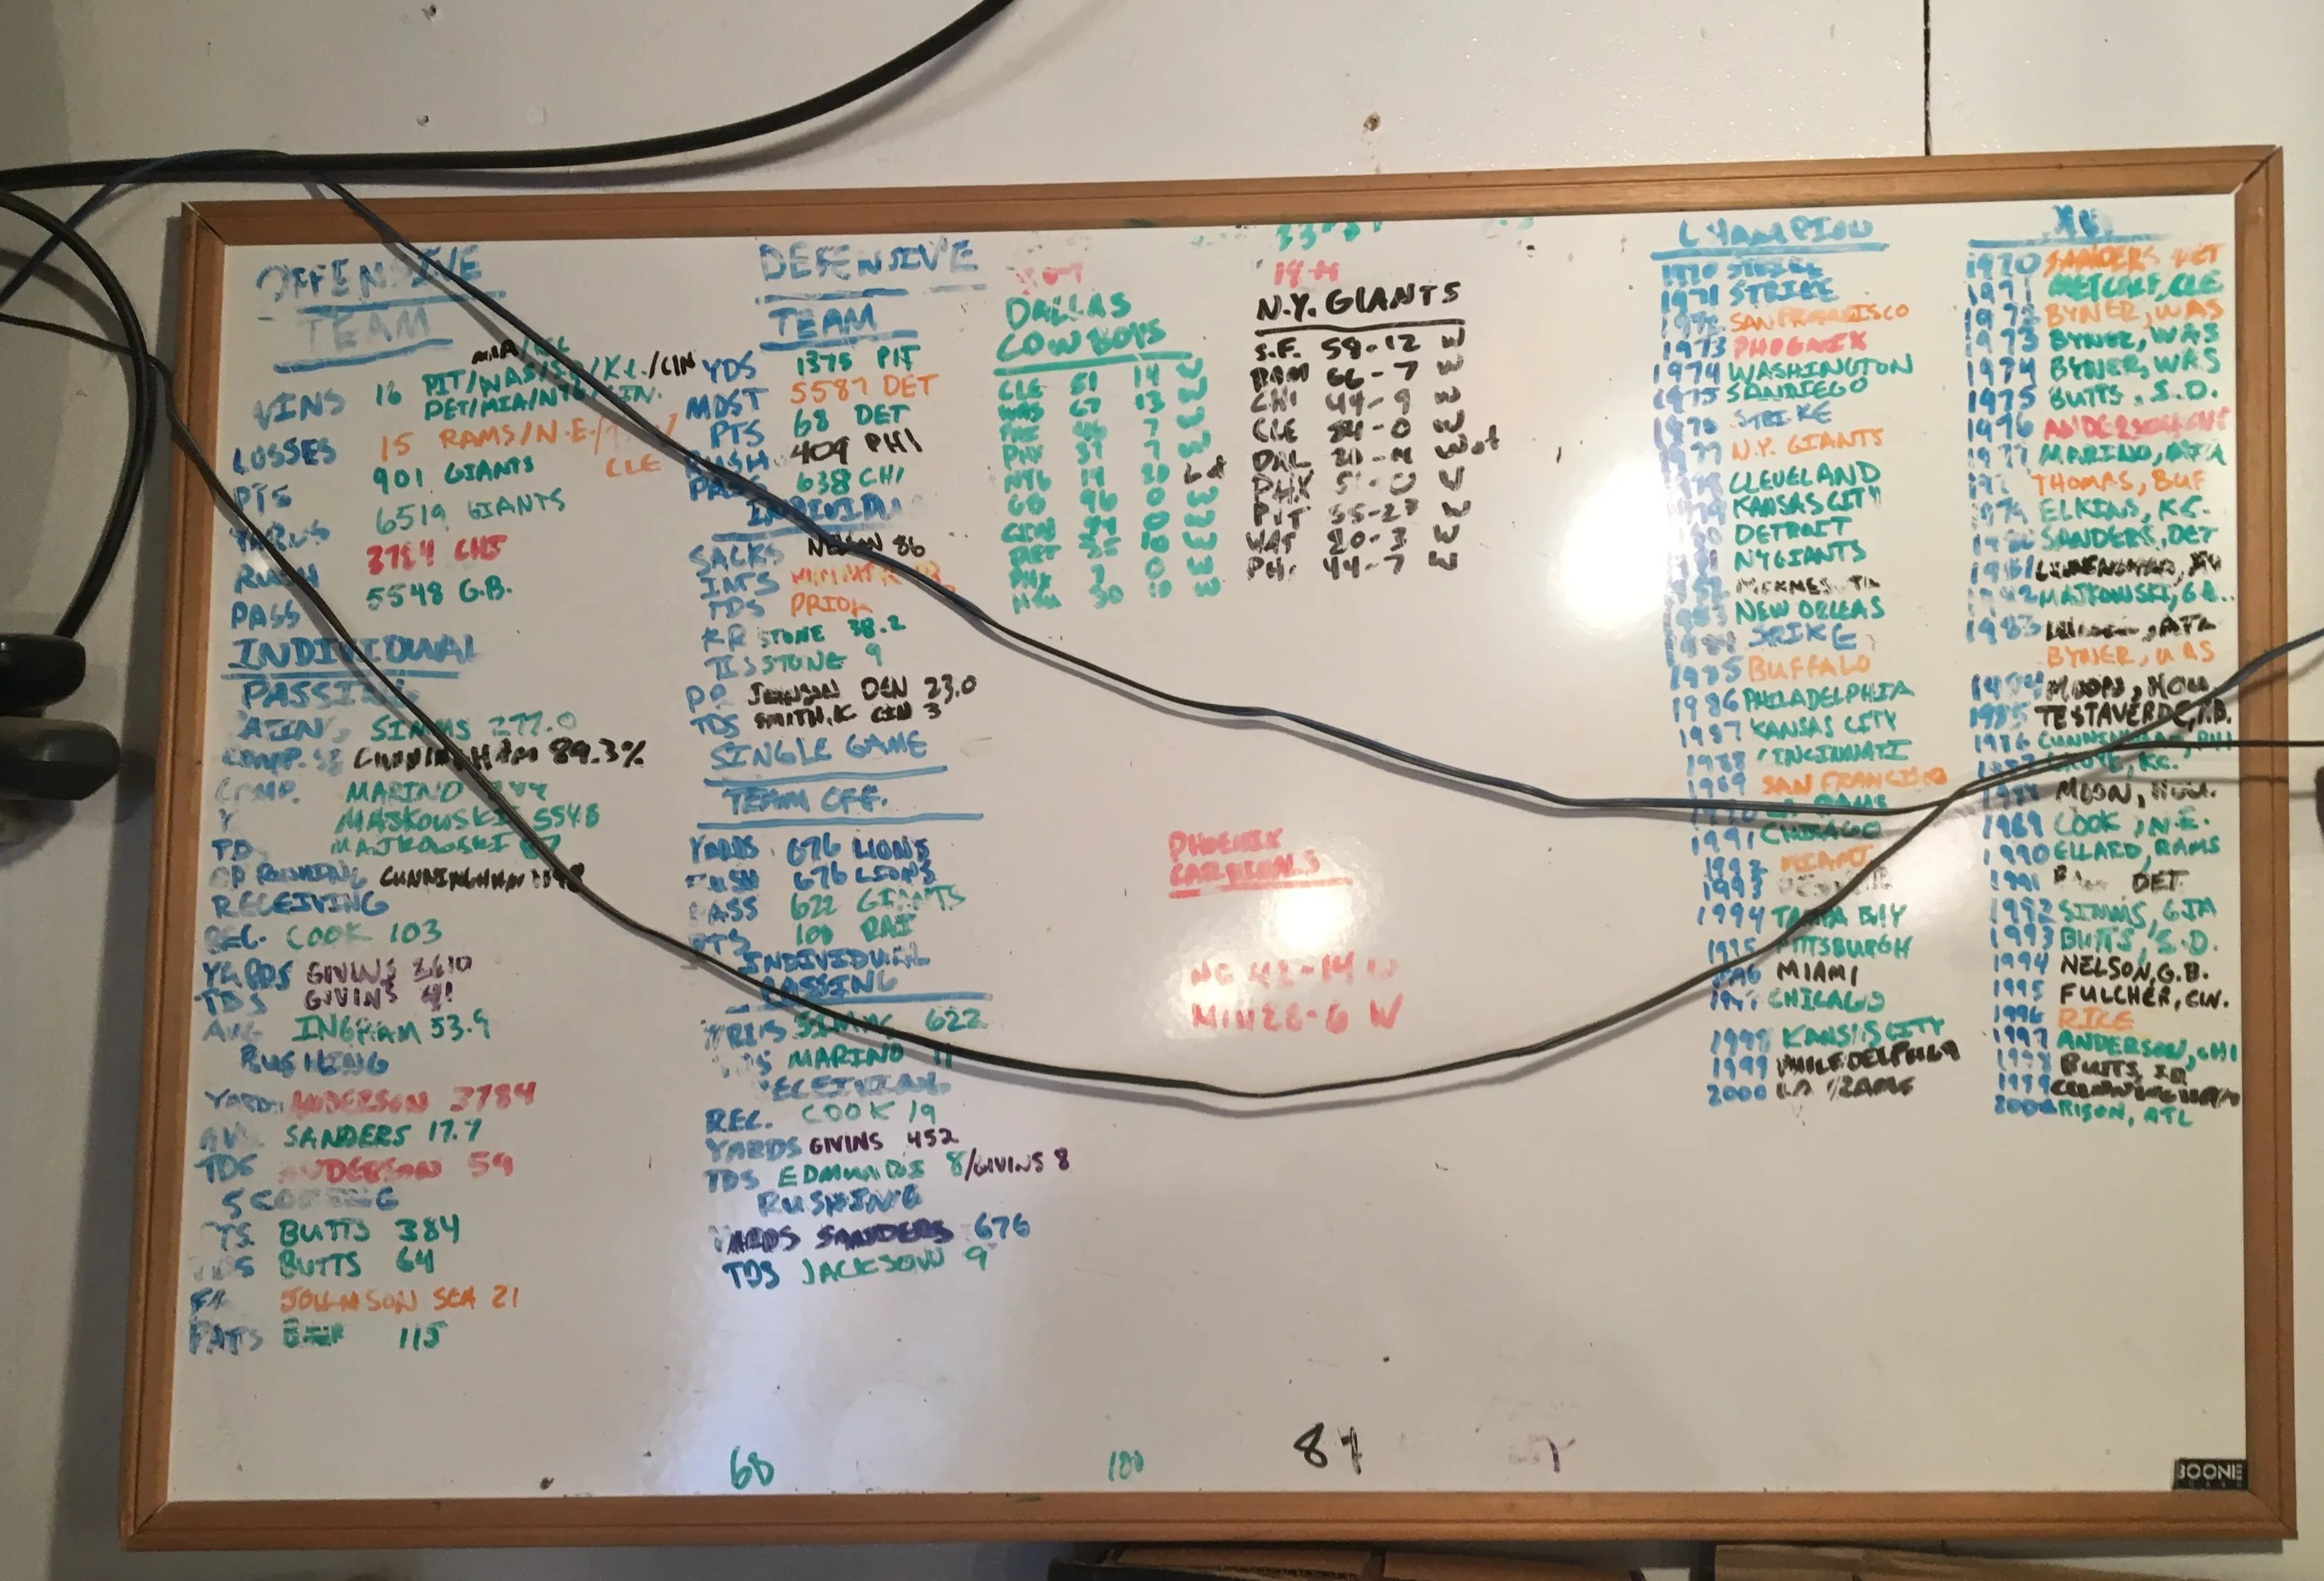 OFFENSIVE
TEAM
MIA/
WINS 16 PIT/WAS/S.D/K.C./CIN
DET/MIA/NYG/CIN.
LOSSES 15 RAMS/N.E./
CLE
PTS 901 GIANTS
YARDS 6519 GIANTS
RUSH 3784 CHI
PASS 5548 G.B.
INDIVIDUAL
PASSING
SIMMS 277.0
COMP. % CUNNINGHAM 89.3%
COMP. MARINO
Y MAJKOWSKI 5548
TD MAJKOWSKI 67
QB RUSHING CUNNINGHAM
RECEIVING
REC. COOK 103
YARDS GIVINS 2610
TDS GIVINS 41
AVG INGRAM 53.9
RUSHING
YARDS ANDERSON 3784
AV. SANDERS 17.7
TDS ANDERSON 59
SCORING
PTS. BUTTS 384
TDS BUTTS 64
FG JOHNSON SEA 21
PATS 115
DEFENSIVE
TEAM
YDS 1375 PIT
MOST 5587 DET
PTS 68 DET
RUSH 409 PHI
PASS 638 CHI
INDIVIDUAL
SACKS NELSON 86
INTS
TDS PRIOR
KR STONE 38.2
TDS STONE 9
PR JOHNSON DEN 23.0
TDS SMITH.K CIN 3
SINGLE GAME
TEAM OFF.
YARDS 676 LIONS
RUSH 676 LIONS
PASS 622 GIANTS
PTS 100 RAI
INDIVIDUAL
PASSING
YARDS SIMMS 622
TDS MARINO 11
RECEIVING
REC. COOK 19
YARDS GIVINS 452
TDS EDMUNDS 8/GIVINS 8
RUSHING
YARDS SANDERS 676
TDS JACKSON 9
DALLAS
COWBOYS
CLE 51 14 W
WAS 67 13 W
7 W
PHI 37 7 W
NYG 14 20 L
GB 96 0 W
CIN 0 W
DET 0 W
PHX 7 0 W
30 10 W
N.Y. GIANTS
S.F. 58-12 W
RAM 66-7 W
CHI 44-9 W
CLE -0 W
DAL W OT
PHX W
PIT 55-27 W
WAS 20-3 W
PHI 44-7 W
PHOENIX
CARDINALS
42-14 W
MIN 28-6 W
CHAMPION
1970 STRIKE
1971 STRIKE
1972 SAN FRANCISCO
1973 PHOENIX
1974 WASHINGTON
1975 SANDIEGO
1976 STRIKE
1977 N.Y. GIANTS
1978 CLEVELAND
1979 KANSAS CITY
1980 DETROIT
1981 NYGIANTS
1982
1983 NEW ORLEAS
1984 STRIKE
1985 BUFFALO
1986 PHILADELPHIA
1987 KANSAS CITY
1988 CINCINNATI
1989 SAN FRANCISCO
1990 L.A. RAMS
1991 CHICAGO
1992 MIAMI
1993
1994 TAMPA BAY
1995 PITTSBURGH
1996 MIAMI
1997 CHICAGO
1998 KANSIS CITY
1999 PHILEDELPHIA
2000 LA RAMS
1970 SANDERS DET
1971 METCALF, CLE
1972 BYNER, WAS
1973 BYNER, WAS
1974 BYNER, WAS
1975 BUTTS, S.D.
1976 ANDERSON CHI
1977 MARINO, MIA
THOMAS, BUF
1979 ELKINS, K.C.
1980 SANDERS, DET
1981
1982 MAJKOWSKI, G.B.
1983
BYNER, WAS
1984 MOON, HOU
1985 TESTAVERDE, T.B.
1986 CUNNINGHAM, PHI
1987 OKOYE, KC.
1988 MOON, HOU.
1989 COOK, N.E.
1990 ELLARD, RAMS
1991 DET
1992 SIMMS, GIA
1993 BUTTS, S.D.
1994 NELSON, G.B.
1995 FULCHER, CIN.
1996 RICE
1997 ANDERSON, CHI
1998 BUTTS, SD
1999 CUNNINGHAM
2000 RISON, ATL
68
100
87
BOONE